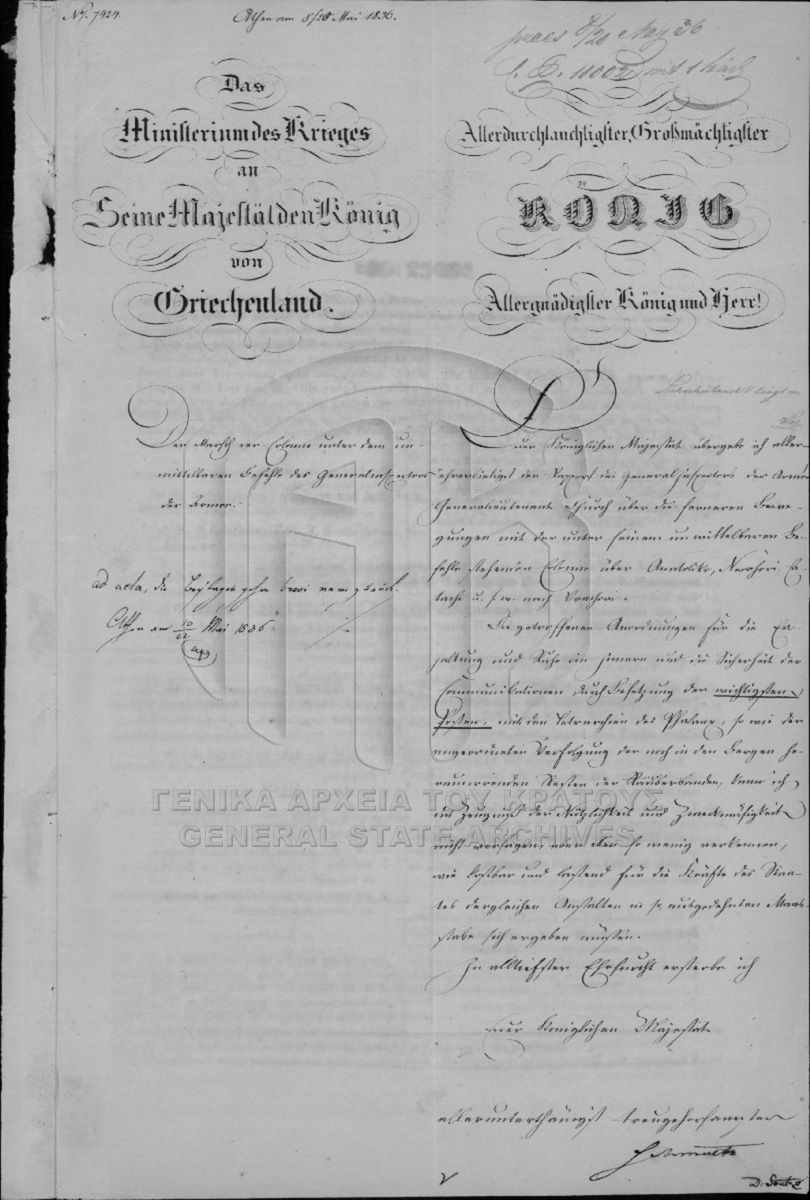 Nº. 7424.
Athen am 8/20 Mai 1836.
praes 8/20 May 36
Das
Ministerium des Krieges
an
Seine Majestät den König
von
Griechenland.
Allerdurchlauchtigster, Großmächtigster
KÖNIG
Allergnädigster König und Herr!
Den Marsch der Colonne unter dem un-
mittelbaren Befehle des Generalinspectors
der Armee.
ad acta, die Beylagen gehen brevi manu zurück.
Athen am 10/22 Mai 1836
Euer Königlichen Majestät übergebe ich aller-
ehrerbietigst den Rapport des Generalinspectors der Armee
Generallieutenant Church über die ferneren Bewe-
gungen mit der unter seinem unmittelbaren Be-
fehle stehenden Colonne über Anatoliko, Neochori, Ca-
tochi u. s. w. nach Vrachori.
Die getroffenen Anordnungen für die Er-
haltung und Ruhe im Innern und die Sicherheit der
Communikationen durch Besetzung der wichtigsten
Posten, mit den Tetrarchien des Phalanx, so wie der
angeordneten Verfolgung der noch in den Bergen he-
rumirrenden Resten der Räuberbanden, kann ich
das Zeugniß der Nützlichkeit und Zweckmäßigkeit
nicht versagen, aber eben so wenig verkennen,
wie kostbar und lastend für die Kräfte des Staa-
tes dergleichen Anstalten in so ausgedehnten Maas-
stabe sich ergeben müssen.
In alltiefster Ehrfurcht ersterbe ich
Euer Königlichen Majestät
allerunterthänigst treugehorsamster
Schmaltz
ΓΕΝΙΚΑ ΑΡΧΕΙΑ ΤΟΥ ΚΡΑΤΟΥΣ
GENERAL STATE ARCHIVES